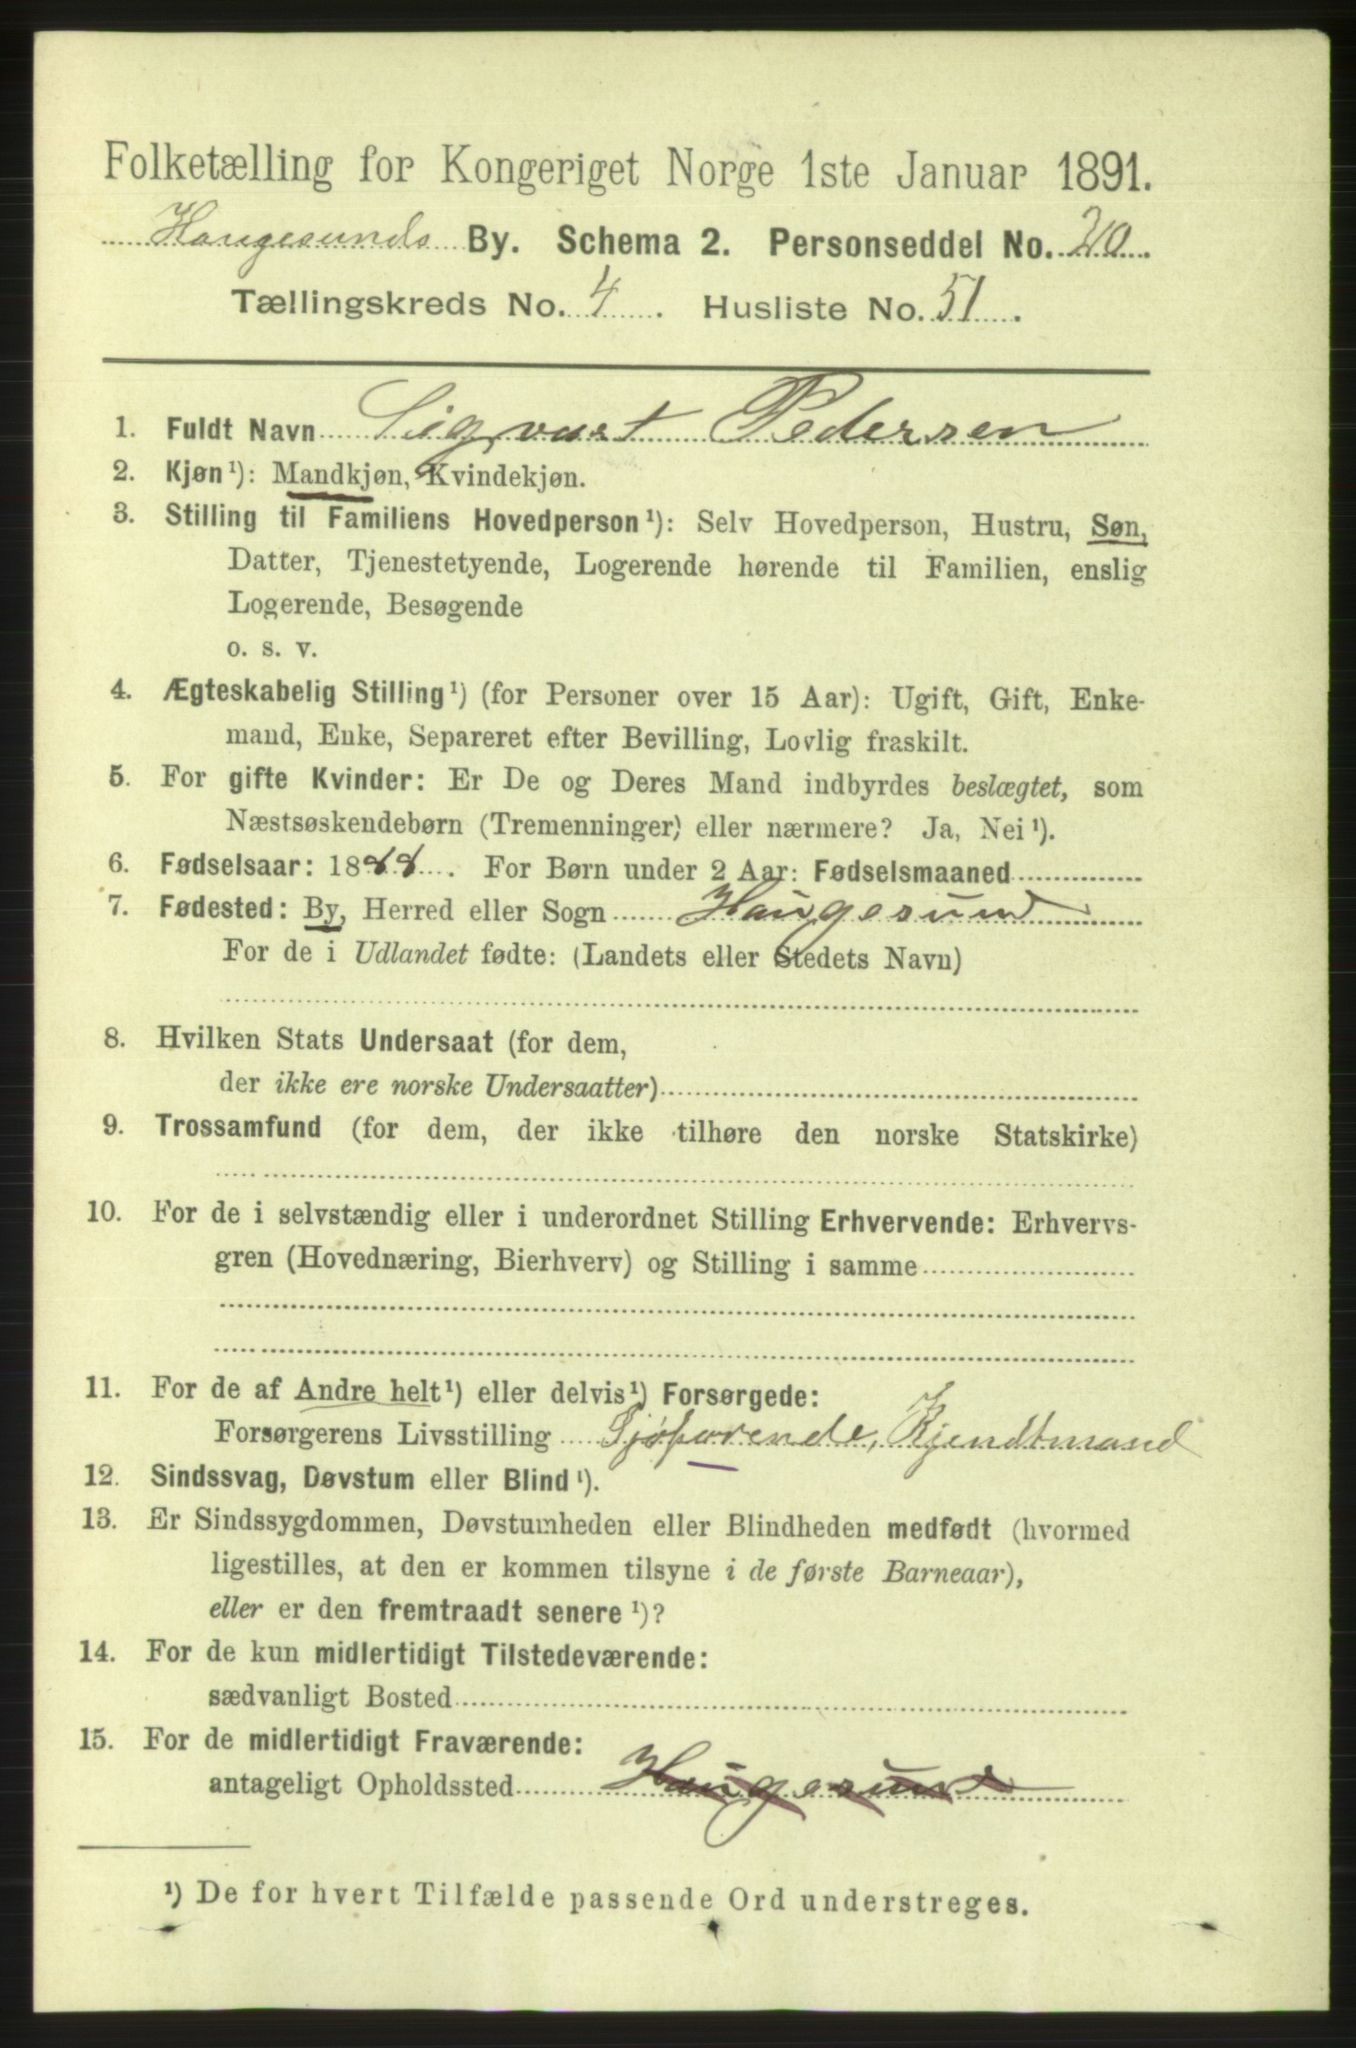 Folketælling for Kongeriget Norge 1ste Januar 1891.
Haugesunds By. Schema 2. Personseddel No. 20.
Tællingskreds No. 4. Husliste No. 51.
1. Fuldt Navn Sigvart Pedersen
2. Kjøn¹): Mandkjøn, Kvindekjøn.
3. Stilling til Familiens Hovedperson¹): Selv Hovedperson, Hustru, Søn,
Datter, Tjenestetyende, Logerende hørende til Familien, enslig
Logerende, Besøgende
o. s. v.
4. Ægteskabelig Stilling¹) (for Personer over 15 Aar): Ugift, Gift, Enke-
mand, Enke, Separeret efter Bevilling, Lovlig fraskilt.
5. For gifte Kvinder: Er De og Deres Mand indbyrdes beslægtet, som
Næstsøskendebørn (Tremenninger) eller nærmere? Ja, Nei¹).
6. Fødselsaar: 1888. For Børn under 2 Aar: Fødselsmaaned
7. Fødested: By, Herred eller Sogn Haugesund
For de i Udlandet fødte: (Landets eller Stedets Navn)
8. Hvilken Stats Undersaat (for dem,
der ikke ere norske Undersaatter)
9. Trossamfund (for dem, der ikke tilhøre den norske Statskirke)
10. For de i selvstændig eller i underordnet Stilling Erhvervende: Erhvervs-
gren (Hovednæring, Bierhverv) og Stilling i samme
11. For de af Andre helt¹) eller delvis¹) Forsørgede:
Forsørgerens Livsstilling Sjøfarende, Kjendtmand
12. Sindssvag, Døvstum eller Blind¹).
13. Er Sindssygdommen, Døvstumheden eller Blindheden medfødt (hvormed
ligestilles, at den er kommen tilsyne i de første Barneaar),
eller er den fremtraadt senere¹)?
14. For de kun midlertidigt Tilstedeværende:
sædvanligt Bosted
15. For de midlertidigt Fraværende:
antageligt Opholdssted Haugesund
¹) De for hvert Tilfælde passende Ord understreges.